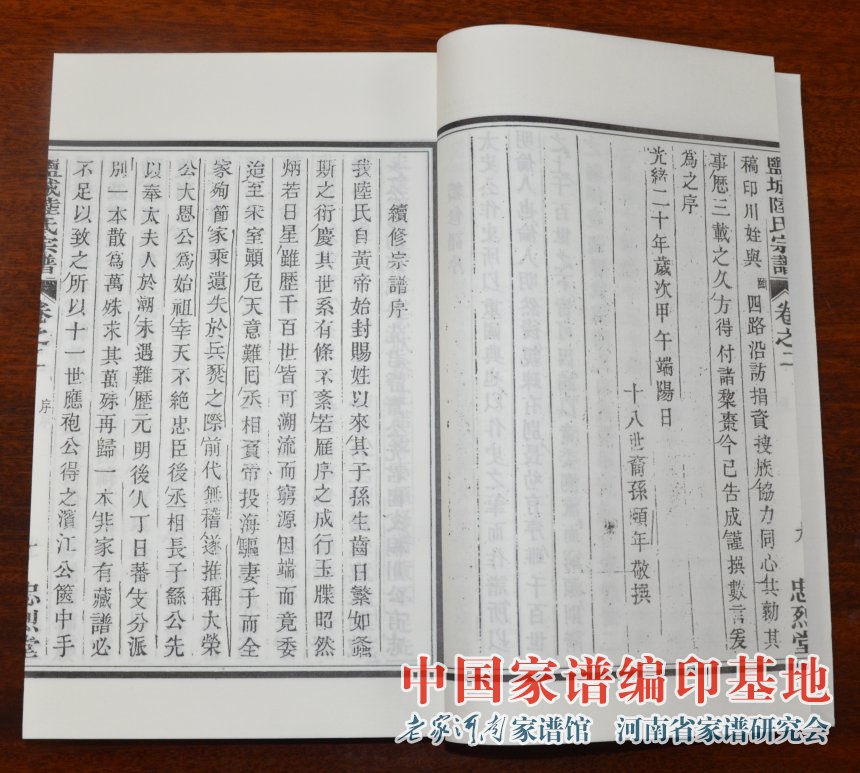 鹽城陸氏宗譜 卷之二
忠烈堂
稿印川姪與 四路沿訪捐資搜族協力同心共勷其
事歷三載之久方得付諸黎棗今已告成謹撰數言爰
為之序
光緒二十年歲次甲午端陽日
十八世裔孫頤年敬撰
續修宗譜序
我陸氏自黃帝始封賜姓以來其子孫生齒日繁如螽
斯之衍慶其世系有條不紊若雁序之成行玉牒昭然
炳若日星雖歷千百世皆可溯流而窮源因端而竟委
迨至宋室顛危天意難回丞相負帝投海驅妻子而全
家殉節家乘遺失於兵燹之際前代無稽遂推稱大榮
公大愚公為始祖幸天不絕忠臣後丞相長子繇公先
以奉太夫人於潮未遇難歷元明後人丁日蕃支分派
別一本散為萬殊求其萬殊再歸一本非家有藏譜必
不足以致之所以十一世應砲公得之濱江公篋中手
鹽城陸氏宗譜 卷之二
序
忠烈堂
中国家谱编印基地
老家河南家谱馆 河南省家谱研究会